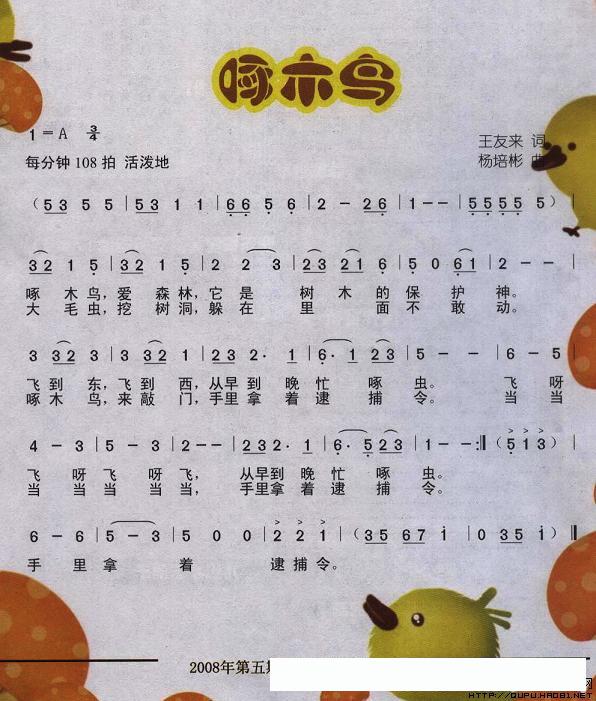 啄木鸟
1 = A 3/4
王友来 词
每分钟 108 拍 活泼地
杨培彬 曲
( 5 3 5 5 | 5 3 1 1 | 6 6 5 6 | 2 - 2 6 | 1 - - | 5 5 5 5 5 ) |
3 2 1 5 | 3 2 1 5 | 2 2 3 | 2 3 2 1 6 | 5 0 6 1 | 2 - - |
啄 木 鸟, 爱 森 林, 它 是 树 木 的 保 护 神。
大 毛 虫, 挖 树 洞, 躲 在 里 面 不 敢 动。
3 3 2 3 | 3 3 2 1 | 2 3 2 · 1 | 6 · 1 2 3 | 5 - - | 6 - 5 |
飞 到 东, 飞 到 西, 从早 到 晚 忙 啄 虫。 飞 呀
啄 木 鸟, 来 敲 门, 手里 拿 着 逮 捕 令。 当 当
4 - 3 | 5 - 3 | 2 - - | 2 3 2 · 1 | 6 · 5 2 3 | 1 - - :‖ ( 5 1 3 ) |
飞 呀 飞 呀 飞, 从早到 晚 忙 啄 虫。
当 当 当 当 当, 手里拿 着 逮 捕 令。
6 - 6 | 5 - 3 | 5 0 0 | 2 2 1 | ( 3 5 6 7 i | 0 3 5 i ) ‖
手 里 拿 着 逮 捕 令。
2008年第五
网
HTTP://QUPU.HAO81.NET